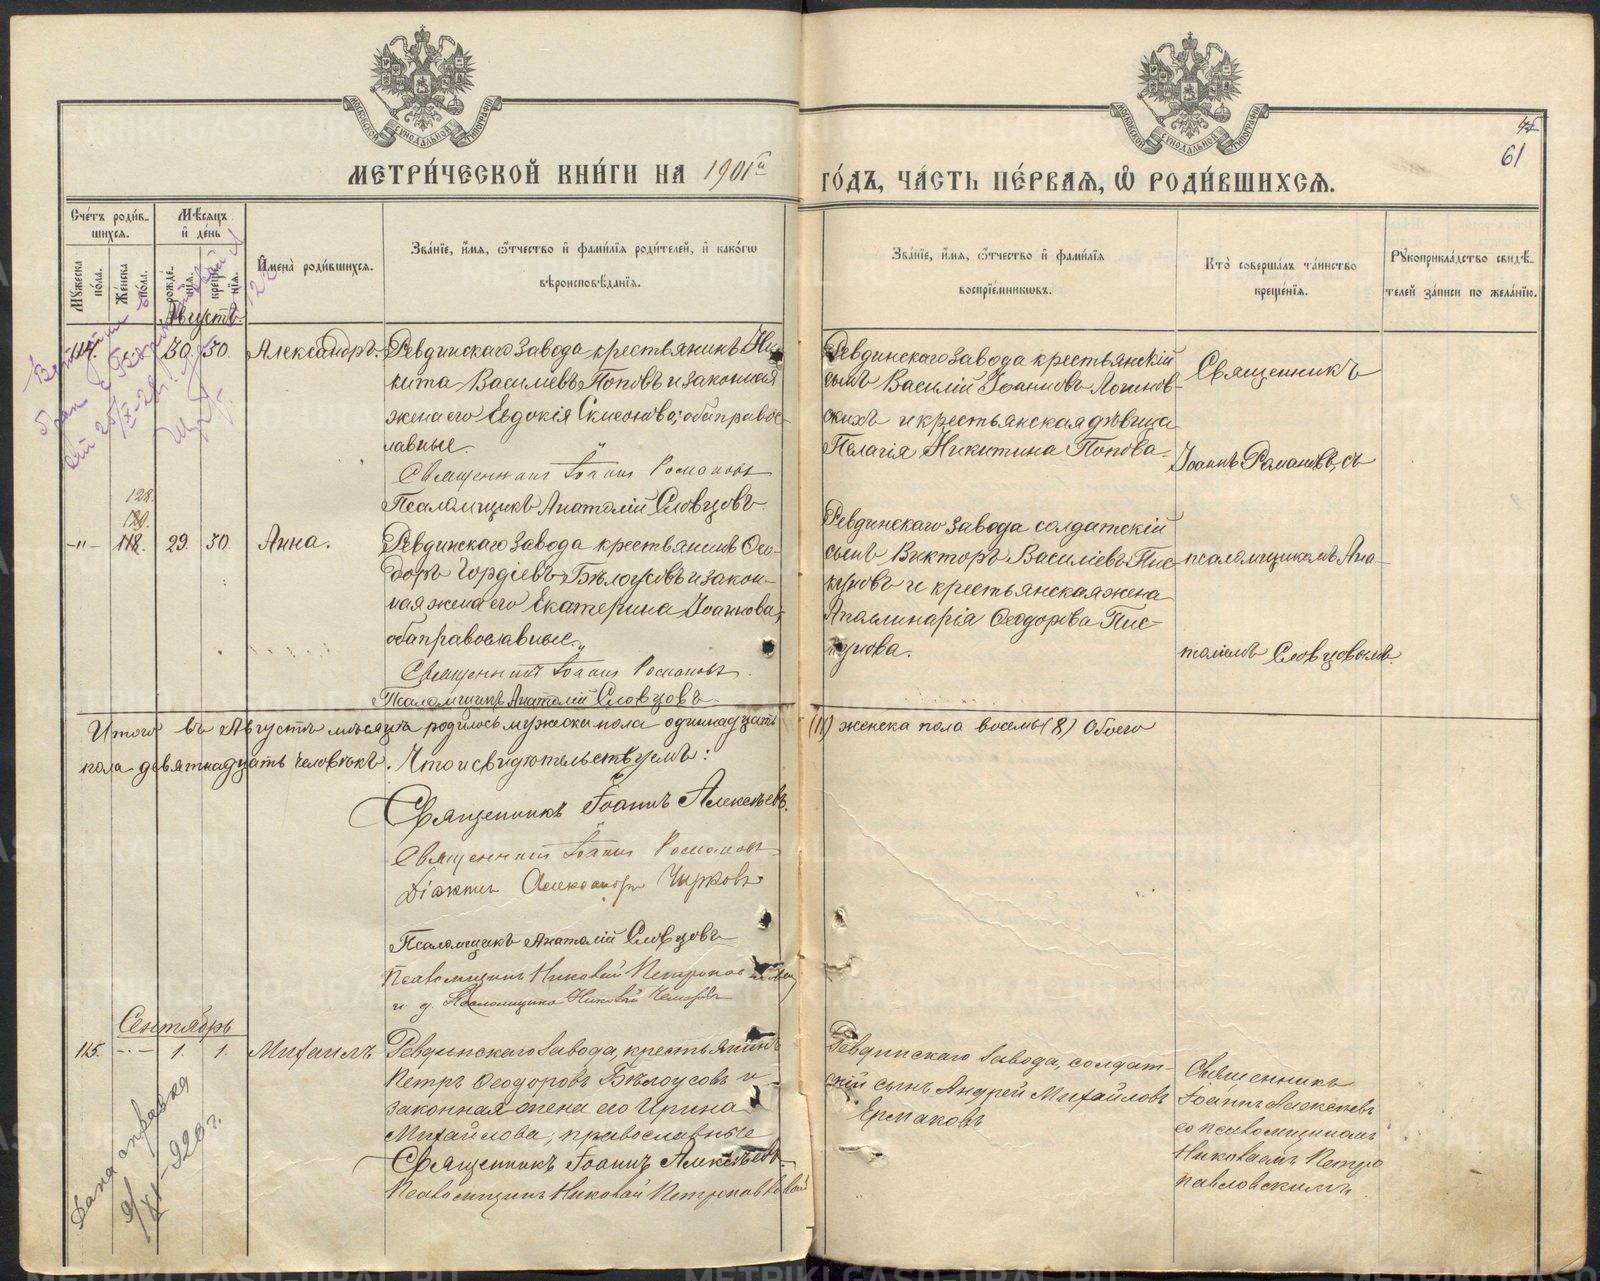 МОСКОВСКОЙ СѴНОДАЛЬНОЙ ТИПОГРАФІИ
МОСКОВСКОЙ СѴНОДАЛЬНОЙ ТИПОГРАФІИ
45
61
МЕТРИ́ЧЕСКОЙ КНИ́ГИ НА 1901й ГО́ДЪ, ЧА́СТЬ ПЕ́РВАЯ, Ѡ҆ РОДИ́ВШИХСЯ.
Сче́тъ роди́в-
шихся.
Мѣ́сяцъ
и҆ де́нь
Му́жеска по́ла.
Же́нска по́ла.
рожде́нія.
креще́нія.
И҆мена̀ роди́вшихся.
Зва́ніе, и҆́мя, ѻ҆́тчество и҆ фами́лія роди́телей, и҆ како́гѡ
вѣроисповѣ́данія.
Зва́ніе, и҆́мя, ѻ҆́тчество и҆ фами́лія
воспріе́мниковъ.
Кто̀ соверша́лъ та́инство
креще́нія.
Рꙋкоприкла́дство свидѣ́-
телей за́писи по жела́нію.
Августъ.
114. 30. 30. Александръ.
Ревдинскаго завода крестьянинъ Ни-
кита Васильевъ Поповъ и законная
жена его Евдокія Симеонова; оба правос-
лавные.
Священникъ Іоаннъ Романовъ
Псаломщикъ Анатолій Словцовъ
Ревдинскаго завода крестьянскій
сынъ Василій Іоанновъ Логинов-
скихъ и крестьянская дѣвица
Пелагія Никитина Попова.
Священникъ
Іоаннъ Романовъ, съ
128.
120.
-"- 118. 29. 30. Анна.
Ревдинскаго завода крестьянинъ Ѳео-
доръ Гордіевъ Бѣлоусовъ и закон-
ная жена его Екатерина Іоаннова,
оба православные.
Священникъ Іоаннъ Романовъ
Псаломщикъ Анатолій Словцовъ
Ревдинскаго завода солдатскій
сынъ Викторъ Васильевъ Пис-
куновъ и крестьянская жена
Аполлинарія Ѳеодорова Пис-
кунова.
псаломщикомъ Ана-
толіемъ Словцовымъ.
Итого въ Августѣ мѣсяцѣ родилось мужска пола одиннадцать (11) женска пола восемь (8) Обоего
пола девятнадцать человѣкъ. Что и свидѣтельствуемъ:
Священникъ Іоаннъ Алексѣевъ.
Священникъ Іоаннъ Романовъ
Діаконъ Александръ Чирковъ
Псаломщикъ Анатолій Словцовъ
Псаломщикъ Николай
и. д. Псаломщика Николай
Сентябрь
115. -"- 1. 1. Михаилъ.
Ревдинскаго завода, крестьянинъ
Петръ Ѳеодоровъ Бѣлоусовъ и
законная жена его Ирина
Михайлова, православные
Священникъ Іоаннъ Алексѣевъ
Псаломщикъ Николай Петропавловскій
Ревдинскаго завода, солдат-
скій сынъ Андрей Михайловъ
Ермаковъ
Священникъ
Іоаннъ Алексѣевъ
со псаломщикомъ
Николаемъ Петро
павловскимъ
Дана справка
9/XI-920 г.